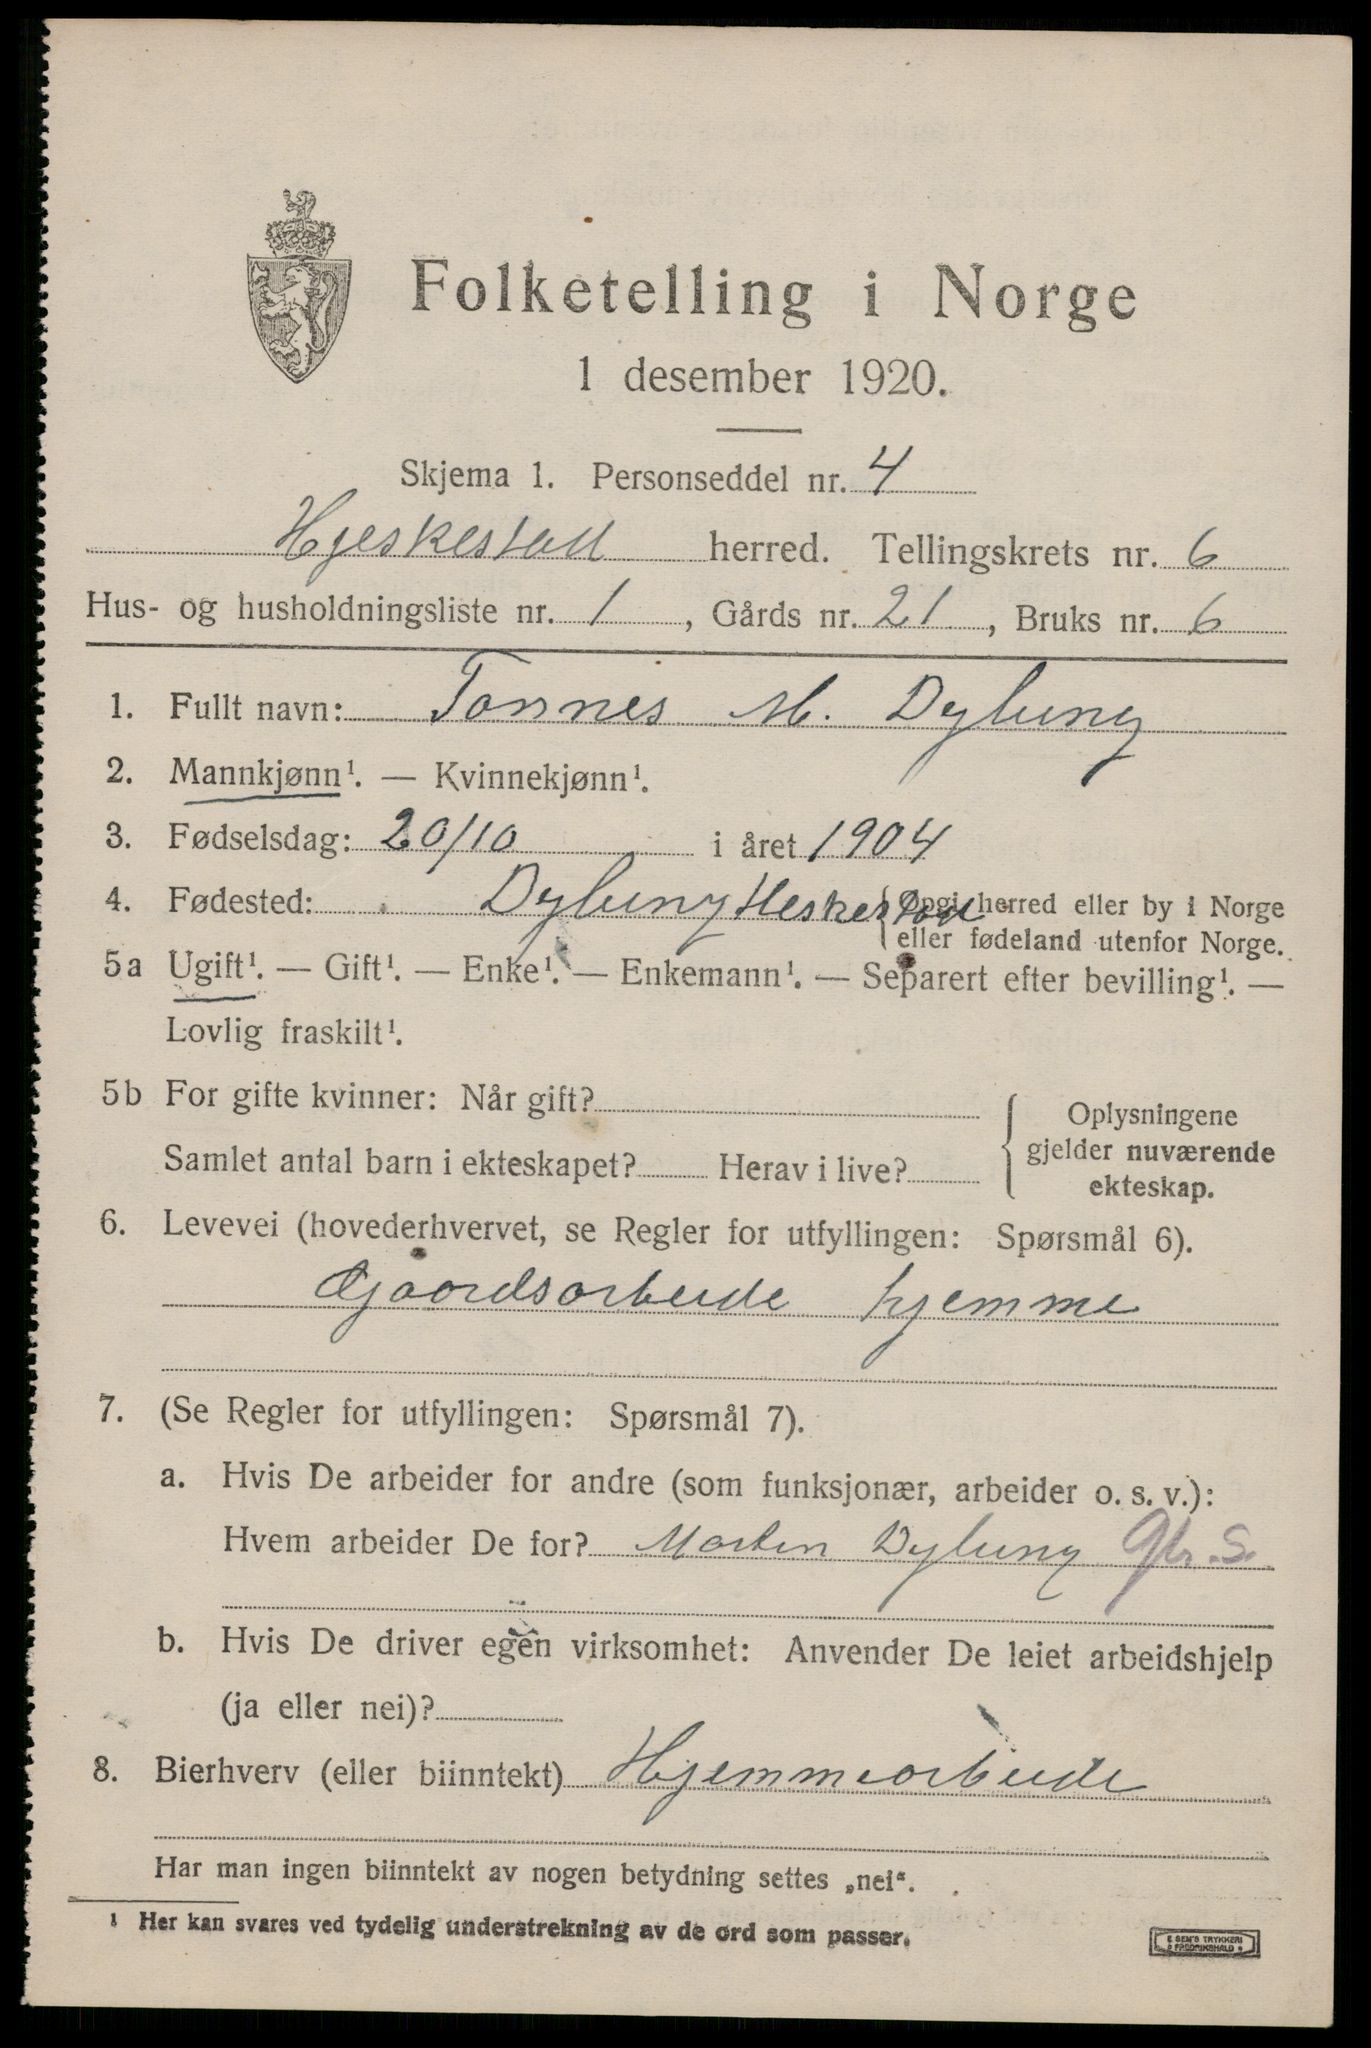 Folketelling i Norge
1 desember 1920.
Skjema 1. Personseddel nr. 4
Hjeskestad herred. Tellingskrets nr. 6
Hus- og husholdningsliste nr. 1, Gårds nr. 21, Bruks nr. 6
1. Fullt navn: Tønnes M. Dylung
2. Mannkjønn¹. — Kvinnekjønn¹.
3. Fødselsdag: 20/10 i året 1904
4. Fødested: Dylung Heskestad {Opgi herred eller by i Norge
eller fødeland utenfor Norge.
5a Ugift¹. — Gift¹. — Enke¹. — Enkemann¹. — Separert efter bevilling¹. —
Lovlig fraskilt¹.
5b For gifte kvinner: Når gift?
Samlet antal barn i ekteskapet? Herav i live?
Oplysningene
gjelder nuværende
ekteskap.
6. Levevei (hovederhvervet, se Regler for utfyllingen: Spørsmål 6).
Gaardsarbeide hjemme
7. (Se Regler for utfyllingen: Spørsmål 7).
a. Hvis De arbeider for andre (som funksjonær, arbeider o. s. v.):
Hvem arbeider De for? Martin Dylung Gbr. S.
b. Hvis De driver egen virksomhet: Anvender De leiet arbeidshjelp
(ja eller nei)?
8. Bierhverv (eller biinntekt) Hjemmearbeide
Har man ingen biinntekt av nogen betydning settes „nei“.
¹ Her kan svares ved tydelig understrekning av de ord som passer.